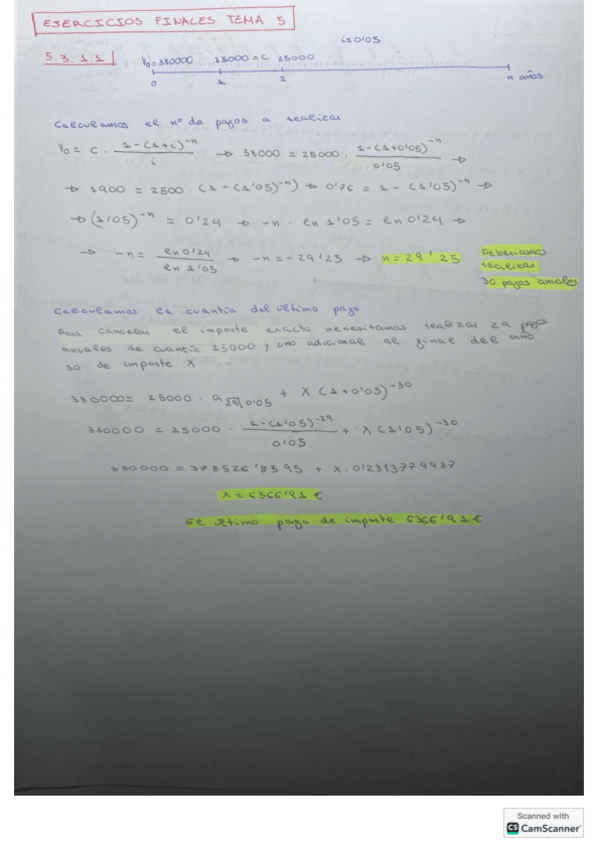 EJERCICIOS FINALES TEMA 5
i=0'05
5.3.1.1
V₀=380000 25000=C 25000
0 1 2 n años
Calculamos el nº de pagos a realizar
V₀ = C · (1-(1+i)^-n)/i → 38000 = 25000 · (1-(1+0'05)^-n)/0'05 →
→ 1900 = 2500 · (1-(1'05)^-n) → 0'76 = 1-(1'05)^-n →
→ (1'05)^-n = 0'24 → -n · ln 1'05 = ln 0'24 →
→ -n = ln 0'24/ln 1'05 → -n = -29'25 → n = 29'25
Deberíamos
realizar
30 pagos anuales
Calculamos la cuantía del último pago
Para cancelar el importe exacto necesitamos realizar 29 pagos
anuales de cuantía 25000 y uno adicional al final del año
30 de importe X
380000 = 25000 · a 29| 0'05 + X (1+0'05)^-30
380000 = 25000 · (1-(1'05)^-29)/0'05 + X (1'05)^-30
380000 = 378526'8395 + X · 0'2313774487
X = 6366'91 €
El último pago de importe 6366'91 €
Scanned with
CS CamScanner